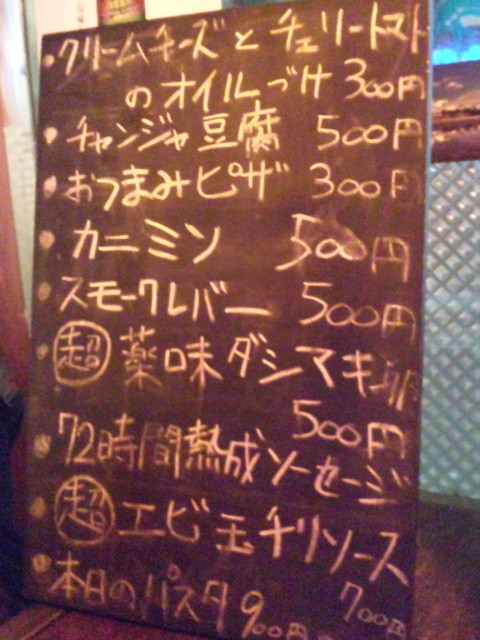 ・クリームチーズとチェリートマト
のオイルづけ 300円
・チャンジャ豆腐 500円
・おつまみピザ 300円
・カニミソ 500円
・スモークレバー 500円
・超 薬味ダシマキ卵
500円
・72時間熟成ソーセージ
・超 エビ玉チリソース
700円
・本日のパスタ 900円